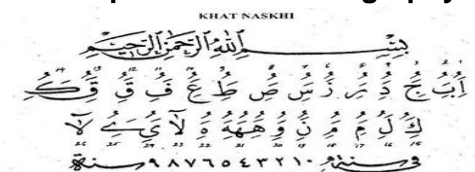 KHAT NASKHI
بِسْمِ اللهِ الرَّحْمٰنِ الرَّحِيْمِ
اُ بُ جُ دُ رُ زُ سُ صُ طُ عُ فُ قُ قُ كُ
كُ لُ مُ مُ نُ وُ هُ هُ هُ ةُ لاُ يُ ےُ لا
في سنة ٩٨٧٦٥٤٣٢١٠ سنة